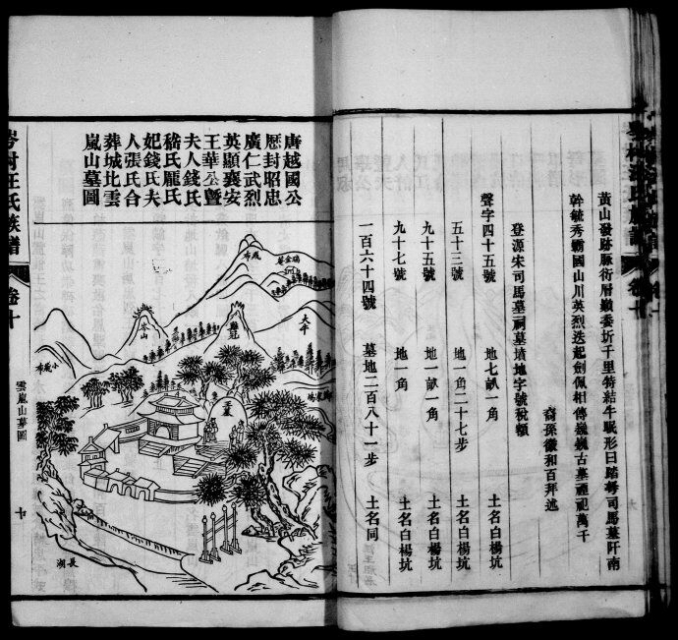 黃山發跡脈衍層巔委圻千里特結牛眠形曰踏蕚司馬墓阡南
幹毓秀霸國山川英烈迭起劍佩相傳巍巍古墓禋祀萬千
裔孫徽和百拜述
登源宋司馬墓祠墓墳地字號稅額
聲字四十五號 地七畝一角 土名白楊坑
五十三號 地一角二十七步 土名白楊坑
九十五號 地一畝一角 土名白楊坑
九十七號 地一角 土名白楊坑
一百六十四號 墓地二百八十一步 土名同
唐越國公
歷封昭忠
廣仁武烈
英顯襄安
王華公暨
夫人錢氏
嵇氏龐氏
妃錢氏夫
人張氏合
葬城北雲
嵐山墓圖
墓
長湖
汪氏族譜
卷十
雲嵐山墓圖